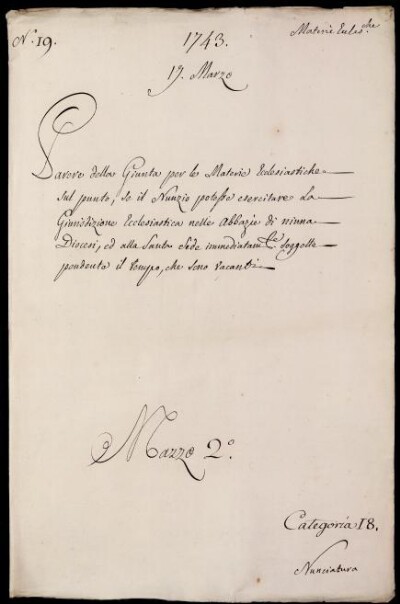 N.° 19.
1743.
Materie Eccles.che
17. Marzo
Parere della Giunta per le Materie Ecclesiastiche
sul punto, se il Nunzio potesse esercitare La
Giurisdizione Ecclesiastica nelle Abbazie di niuna
Diocesi, ed alla Santa Sede immediatam.te Soggette
pendente il tempo, che sono vacanti
Mazzo 2.°
Categoria 18.
Nunciatura